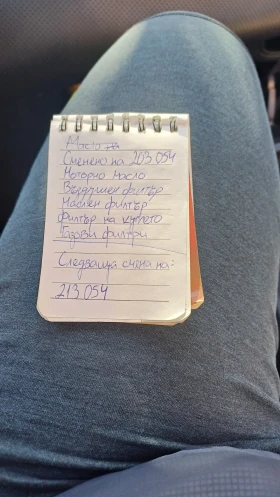 Масло
Сменено на 203 054
Моторно масло
Въздушен филтър
Маслен филтър
Филтър на купето
Газови филтри
Следваща смяна на:
213 054